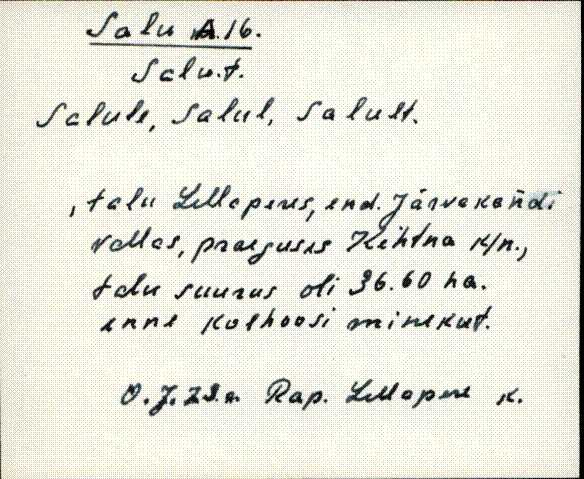 Salu A.16.
Salu.t.
Salule, Salul, Salult.
, talu Lelleperes, end. Järvakandi
vallas, praeguses Kehtna k/n.,
talu suurus oli 36.60 ha.
enne kolhoosi minekut.
O.J. Rap. Lellepere k.